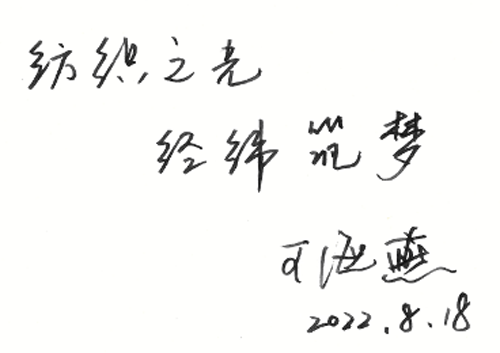 纺织之光
经纬筑梦
海燕
2022.8.18